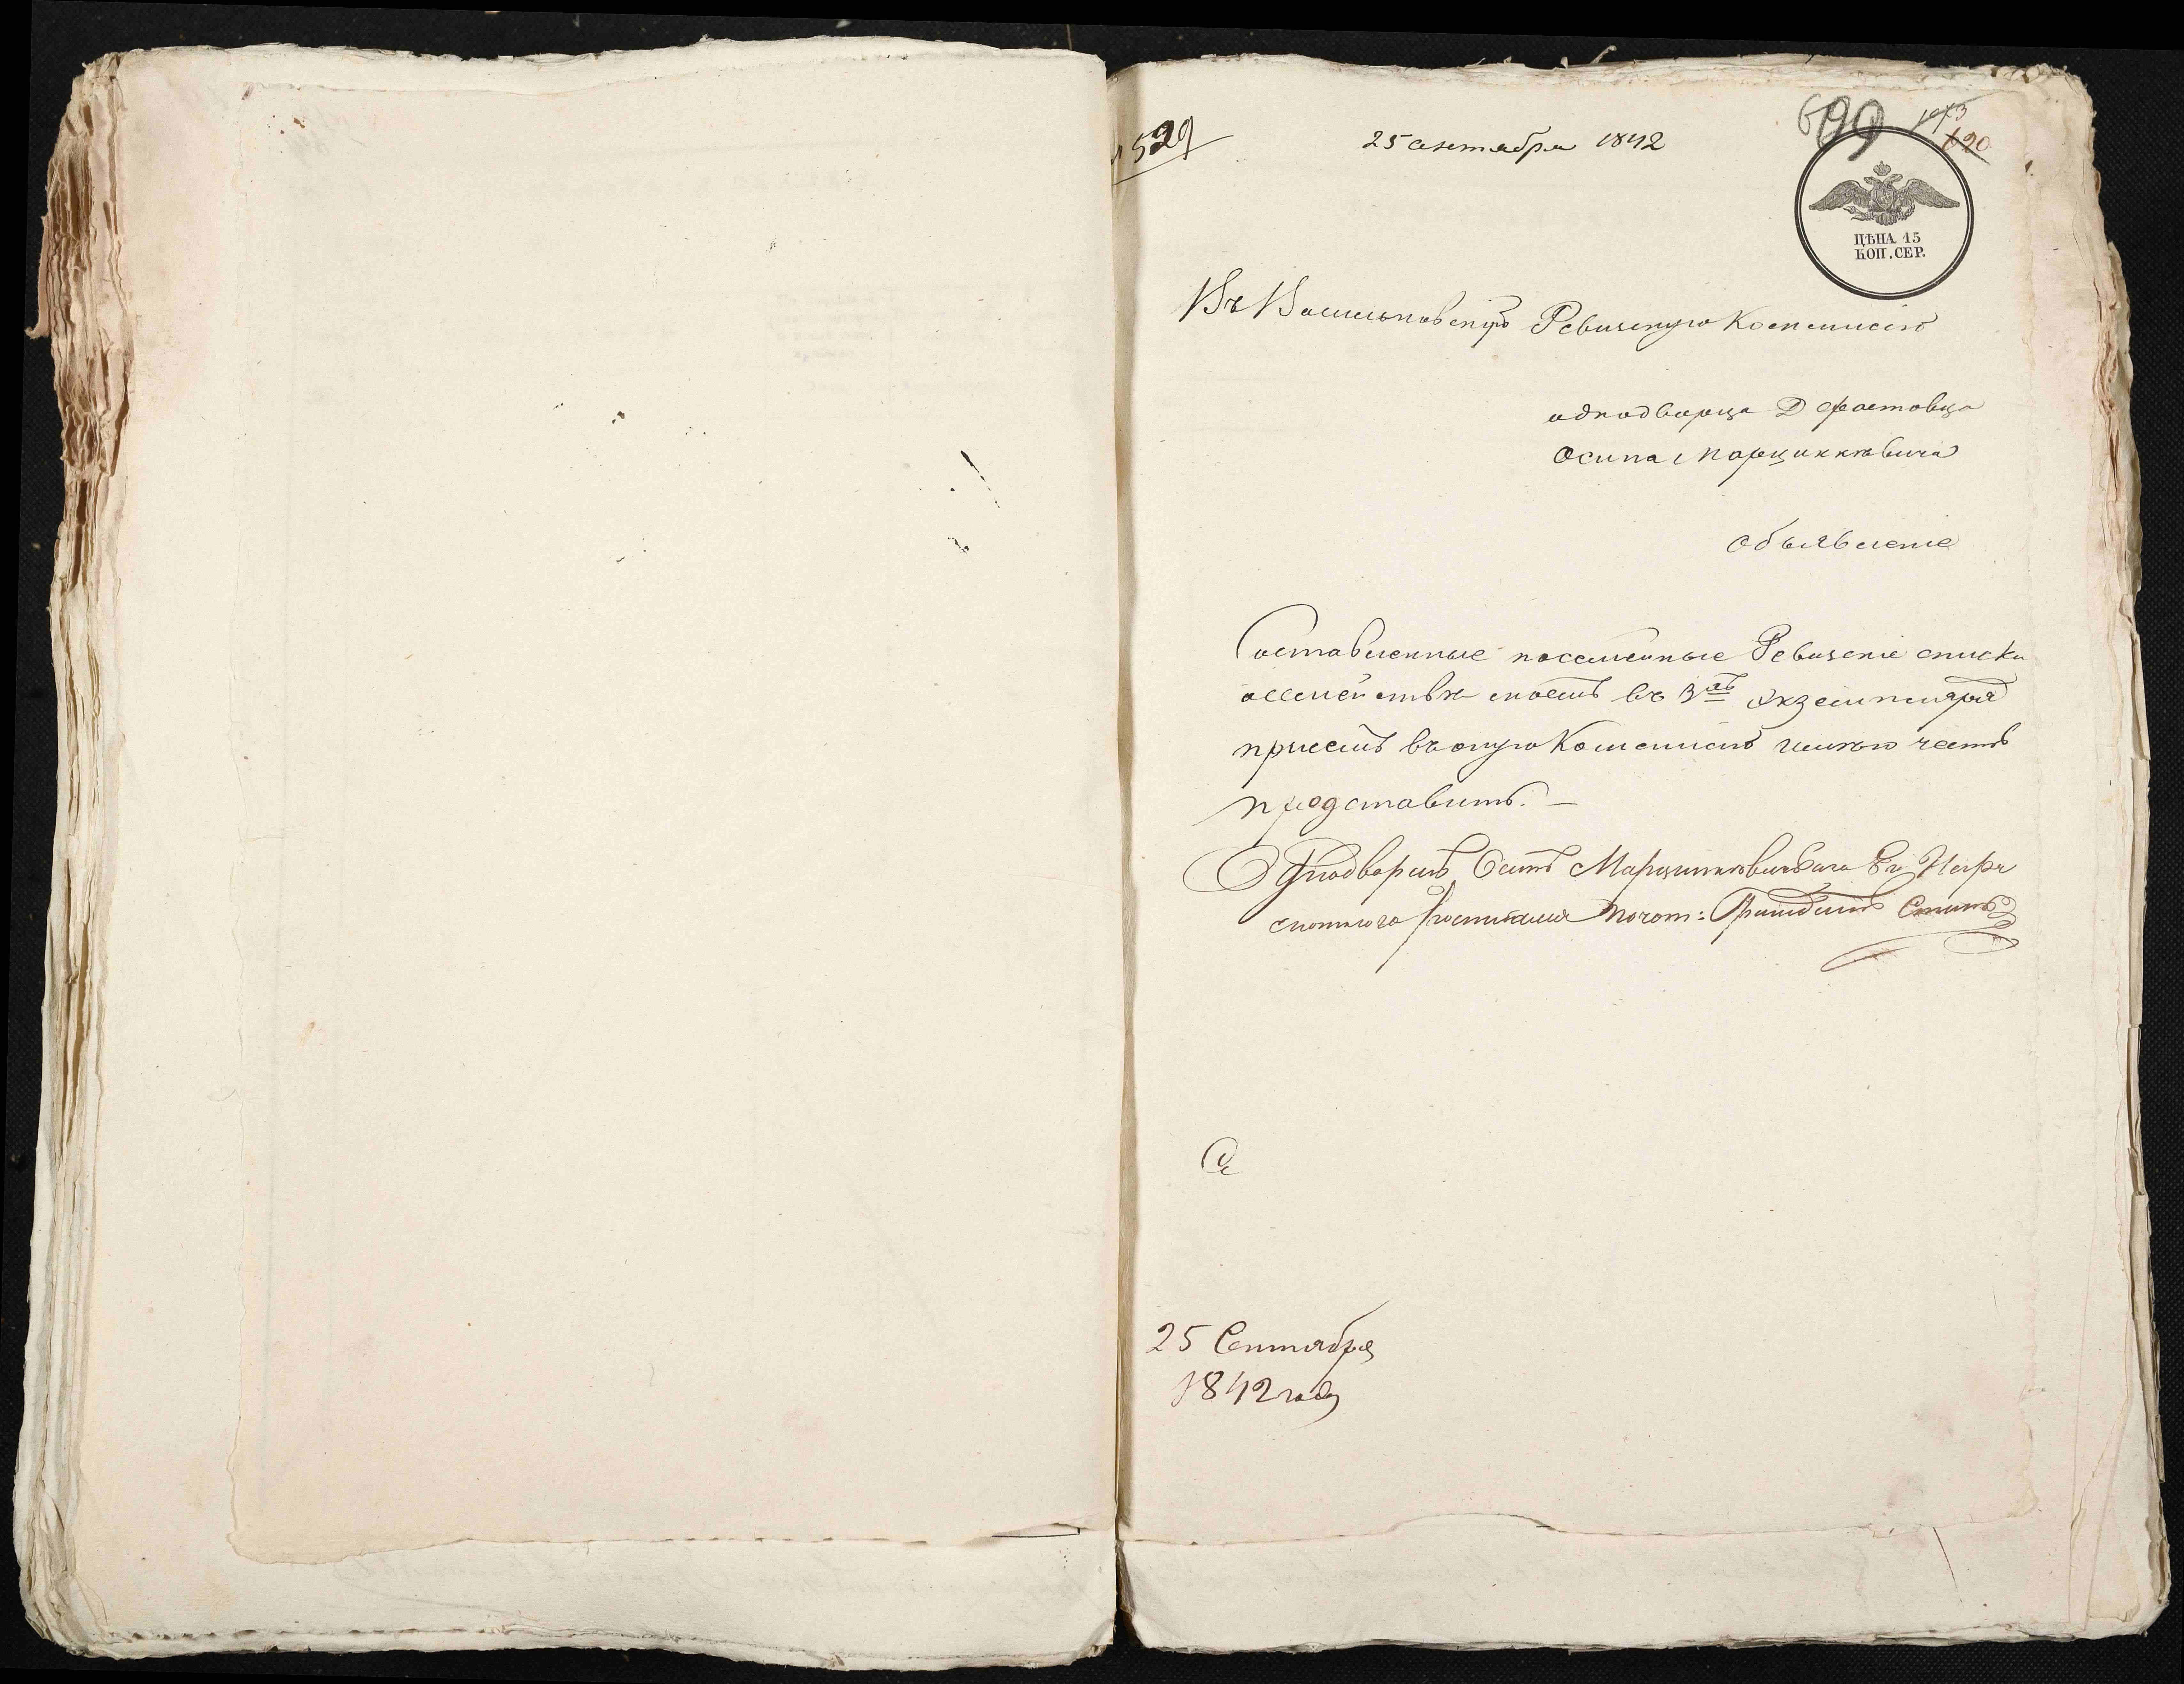 529
25 сентября 1842
699
620
ЦѢНА 15
КОП. СЕР.
Въ Васильковскую Ревизскую Коммисію
однодворца Д Фастовца
Осипа Марцинкевича
Объявленіе
Составленные посемейные Ревизскіе списки
о семействѣ моемъ въ 3хъ экземплярахъ
при семъ в оную Коммисію имѣю честь
представить. —
Однодворецъ Осипъ Марцинкевичъ а вмѣсто его Негра
мотного росписался Почот: Гражданинъ
25 Сентября
1842 года